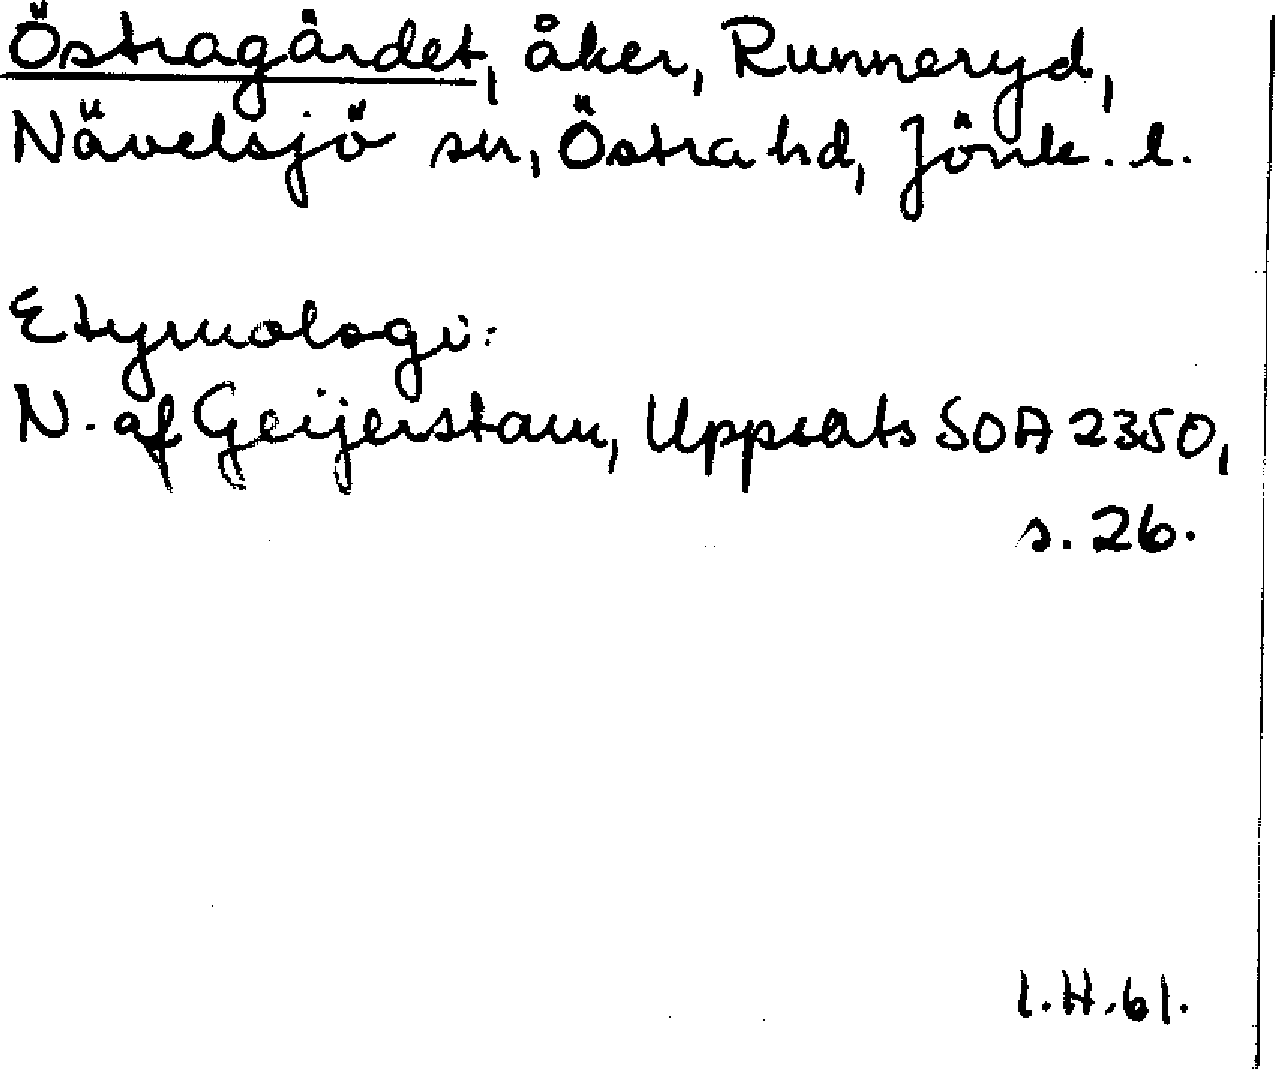 Östragärdet, åker, Runneryd,
Nävelsjö sn, Östra hd, Jönk. l.
Etymologi:
N. af Geijerstam, Uppsats SOA 2350,
s. 26.
I.H.61.